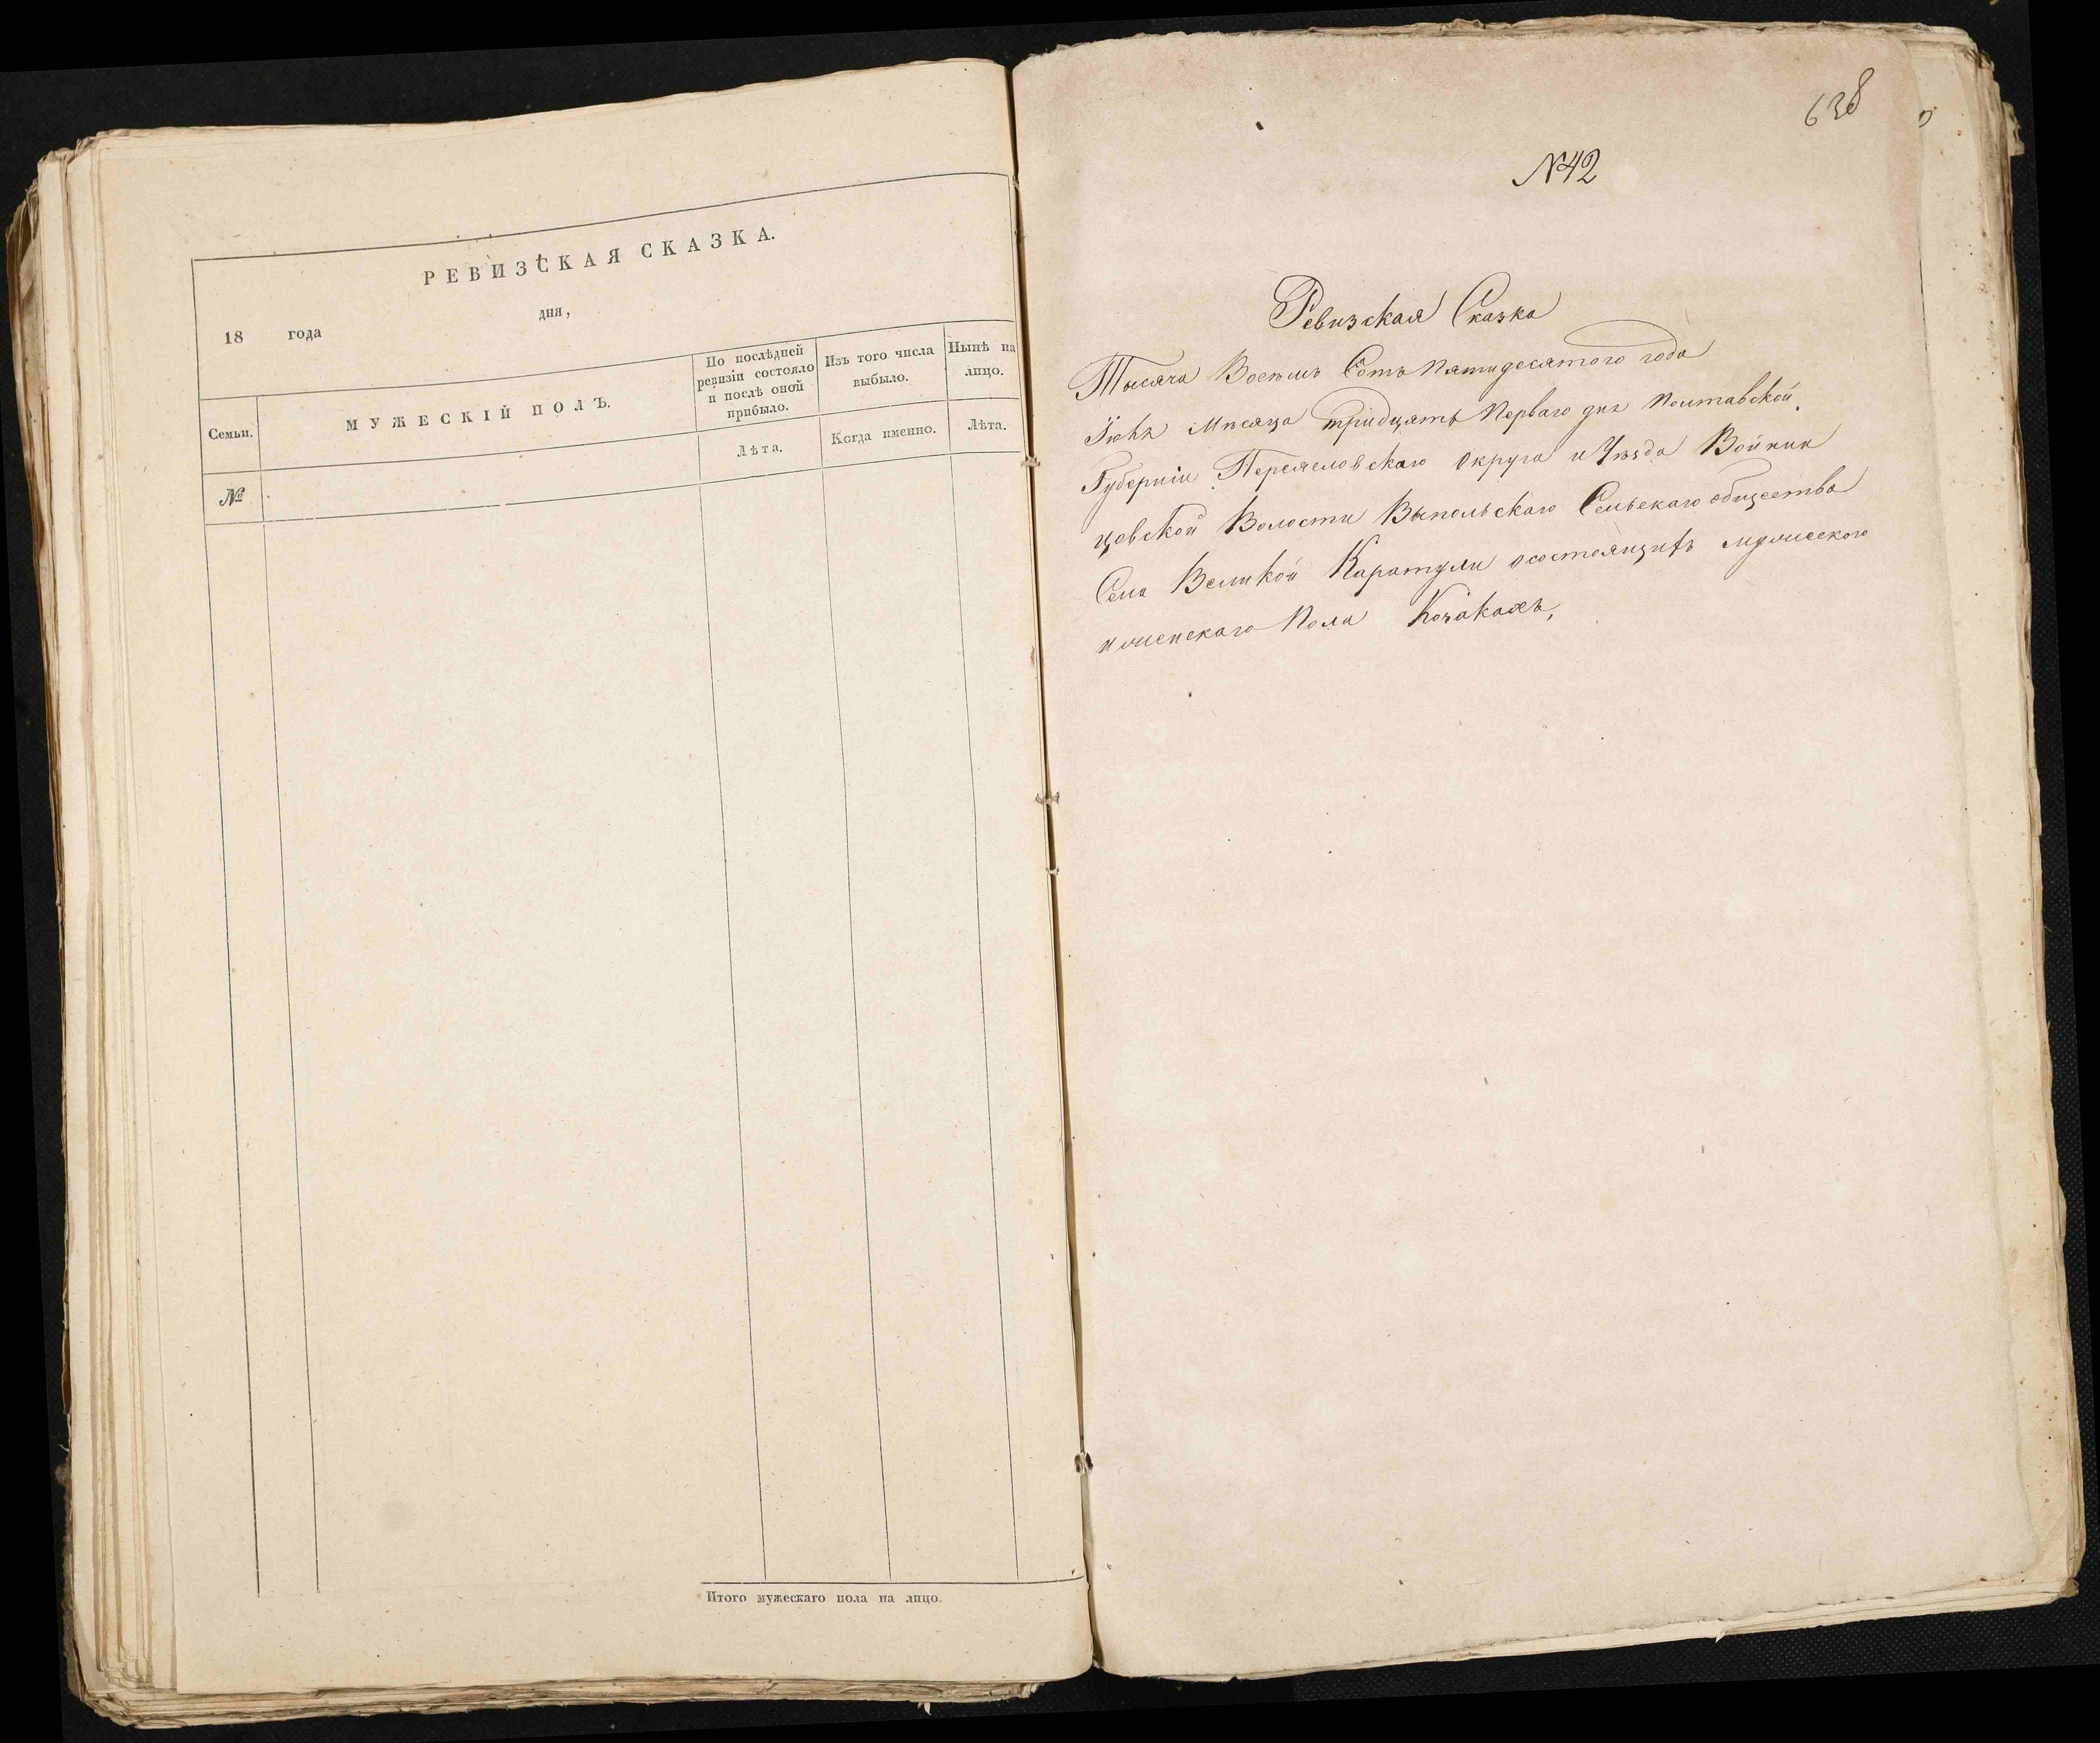 РЕВИЗСКАЯ СКАЗКА.
18 года дня,
Семьи.
МУЖЕСКІЙ ПОЛЪ.
По послѣдней
ревизіи состояло
и послѣ оной
прибыло.
Изъ того числа
выбыло.
Нынѣ на
лицо.
Лѣта.
Когда именно.
Лѣта.
№
Итого мужескаго пола на лицо.
638
№42
Ревизская Сказка
Тысяча Восемь Сотъ Пятидесятого года
мѣсяца тридцять Перваго дня Полтавской
Губерніи Переясловскаго Округа и Уѣзда Войнин
цовской Волости Выпольскаго Сельскаго общества
Села Великой Каратули осостоящихъ мужеского
и женскаго Пола Козакахъ,